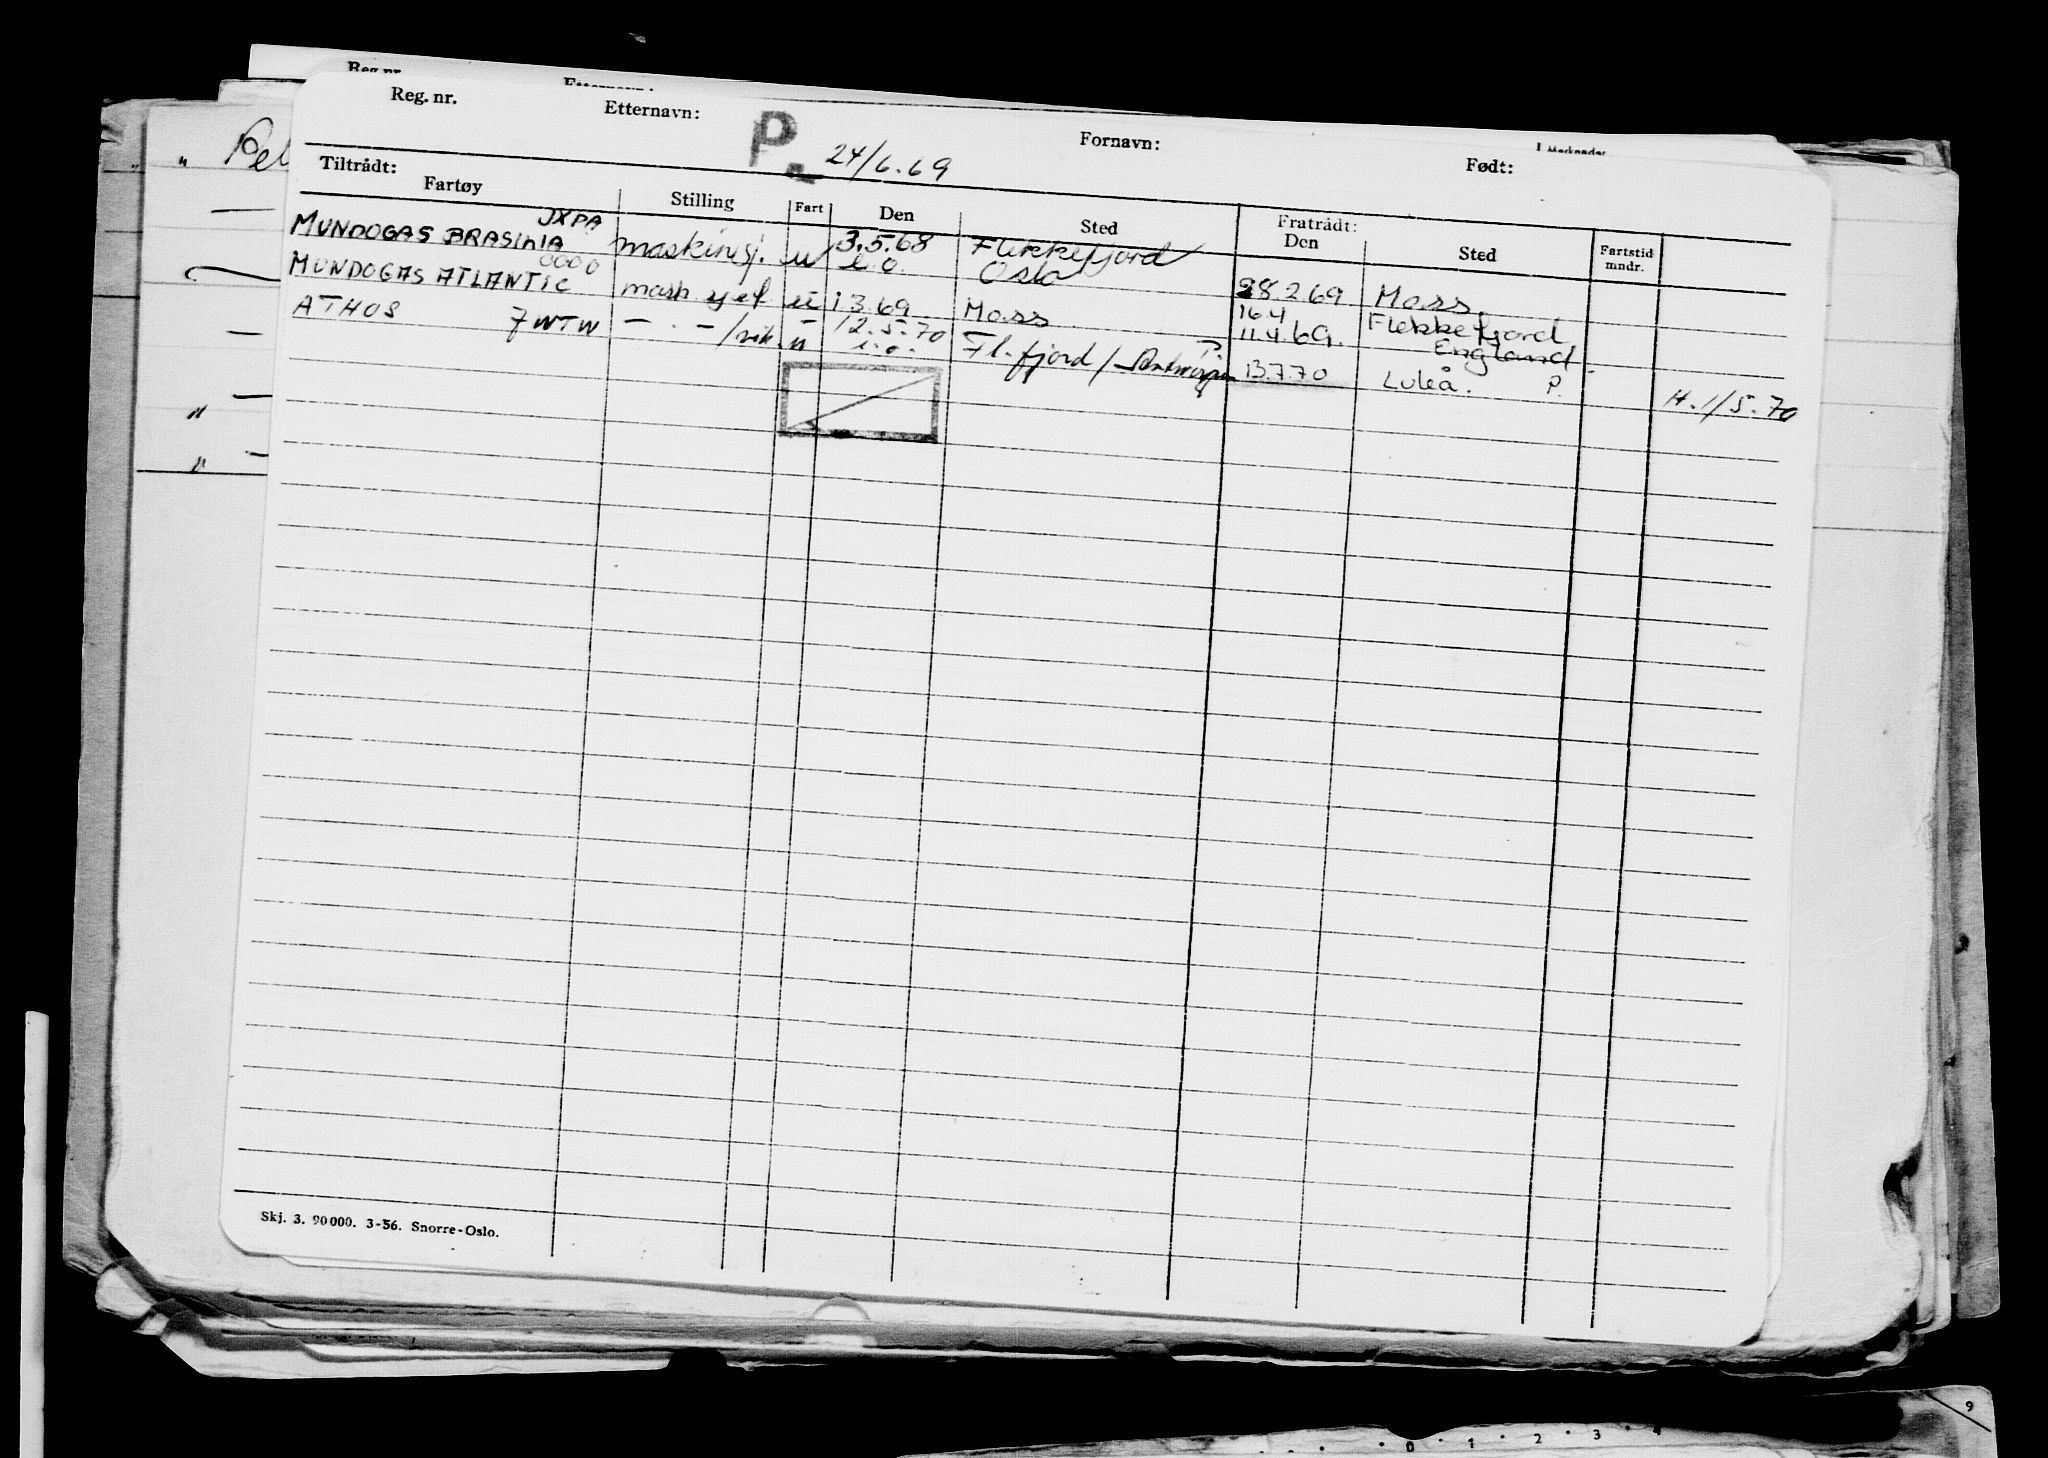 Reg. nr. Etternavn: Fornavn: Født:
P. 24/6.69
Tiltrådt: Fratrådt:
Fartøy Stilling Fart Den Sted Den Sted Fartstid mndr.
JXPA
MUNDOGAS BRASILIA maskinsj. u 3.5.68 Flekkefjord
e.o. Oslo 28.2.69 Moss.
0000
MUNDOGAS ATLANTIC u 1.3.69. Moss 16.4 Flekkefjord
11.4.69. England
ATHOS 7WTW — . — / u 12.5.70 Fl.fjord / Antwerpen 13.7.70 Luleå. P. H. 1/5.70
Skj. 3. 90 000. 3-56. Snorre-Oslo.
" Pel
9
0 1 2 3 4